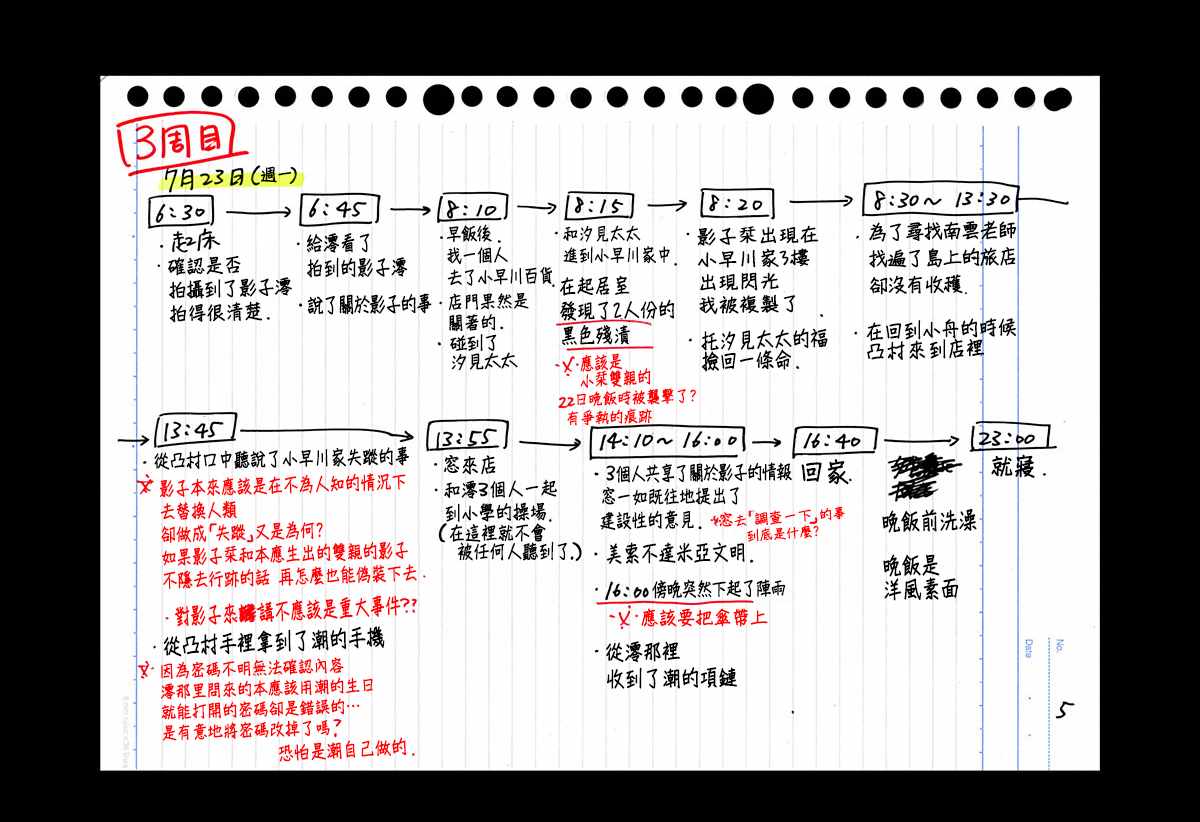 3周目
7月23日(週一)
6:30
・起床
・確認是否
拍攝到了影子澪
拍得很清楚.
6:45
・給澪看了
拍到的影子澪
・說了關於影子的事
8:10
・早飯後.
我一個人
去了小早川百貨
・店門果然是
關著的.
・碰到了
汐見太太
8:15
・和汐見太太
進到小早川家中.
・在起居室
發現了2人份的
黑色殘漬
※・應該是
小栞雙親的
22日晚飯時被襲擊了?
有爭執的痕跡
8:20
・影子栞出現在
小早川家3樓
出現閃光
我被複製了.
・托汐見太太的福
撿回一條命.
8:30～13:30
・為了尋找南雲老師
找遍了島上的旅店
卻沒有收穫.
・在回到小舟的時候
凸村來到店裡
13:45
・從凸村口中聽說了小早川家失蹤的事
※影子本來應該是在不為人知的情況下
去替換人類
卻做成「失蹤」又是為何?
如果影子栞和本應生出的雙親的影子
不隱去行跡的話 再怎麼也能偽裝下去.
・對影子來講不應該是重大事件??
・從凸村手裡拿到了潮的手機
※因為密碼不明無法確認內容
澪那里問來的本應該用潮的生日
就能打開的密碼卻是錯誤的…
是有意地將密碼改掉了嗎?
恐怕是潮自己做的.
13:55
・窓來店
・和澪3個人一起
到小學的操場.
(在這裡就不會
被任何人聽到了.)
14:10～16:00
・3個人共享了關於影子的情報
窓一如既往地提出了
建設性的意見.
*窓去「調查一下」的事
到底是什麼?
・美索不達米亞文明.
・16:00傍晚突然下起了陣雨
※・應該要把傘帶上
・從澪那裡
收到了潮的項鏈
16:40
回家.
晚飯前洗澡
晚飯是
洋風素面
23:00
就寢.
No.
Date
5